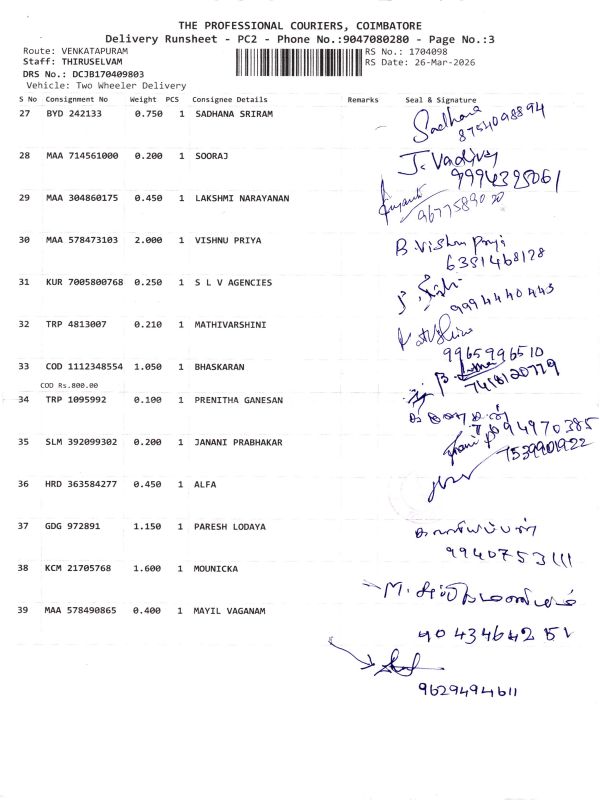 THE PROFESSIONAL COURIERS, COIMBATORE
Delivery Runsheet - PC2 - Phone No.:9047080280 - Page No.:3
Route: VENKATAPURAM RS No.: 1704098
Staff: THIRUSELVAM RS Date: 26-Mar-2026
DRS No.: DCJB170409803
Vehicle: Two Wheeler Delivery
S No Consignment No Weight PCS Consignee Details Remarks Seal & Signature
27 BYD 242133 0.750 1 SADHANA SRIRAM Sadhana
8754098894
28 MAA 714561000 0.200 1 SOORAJ J. Vadivu
9994325061
29 MAA 304860175 0.450 1 LAKSHMI NARAYANAN
30 MAA 578473103 2.000 1 VISHNU PRIYA B. Vishnu Priya
6381468128
31 KUR 7005800768 0.250 1 S L V AGENCIES
9994440443
32 TRP 4813007 0.210 1 MATHIVARSHINI
9965996510
33 COD 1112348554 1.050 1 BHASKARAN
7418120779
COD Rs.800.00
34 TRP 1095992 0.100 1 PRENITHA GANESAN
94970385
35 SLM 392099302 0.200 1 JANANI PRABHAKAR
7539901922
36 HRD 363584277 0.450 1 ALFA
37 GDG 972891 1.150 1 PARESH LODAYA
9940753111
38 KCM 21705768 1.600 1 MOUNICKA
39 MAA 578490865 0.400 1 MAYIL VAGANAM
9629494611